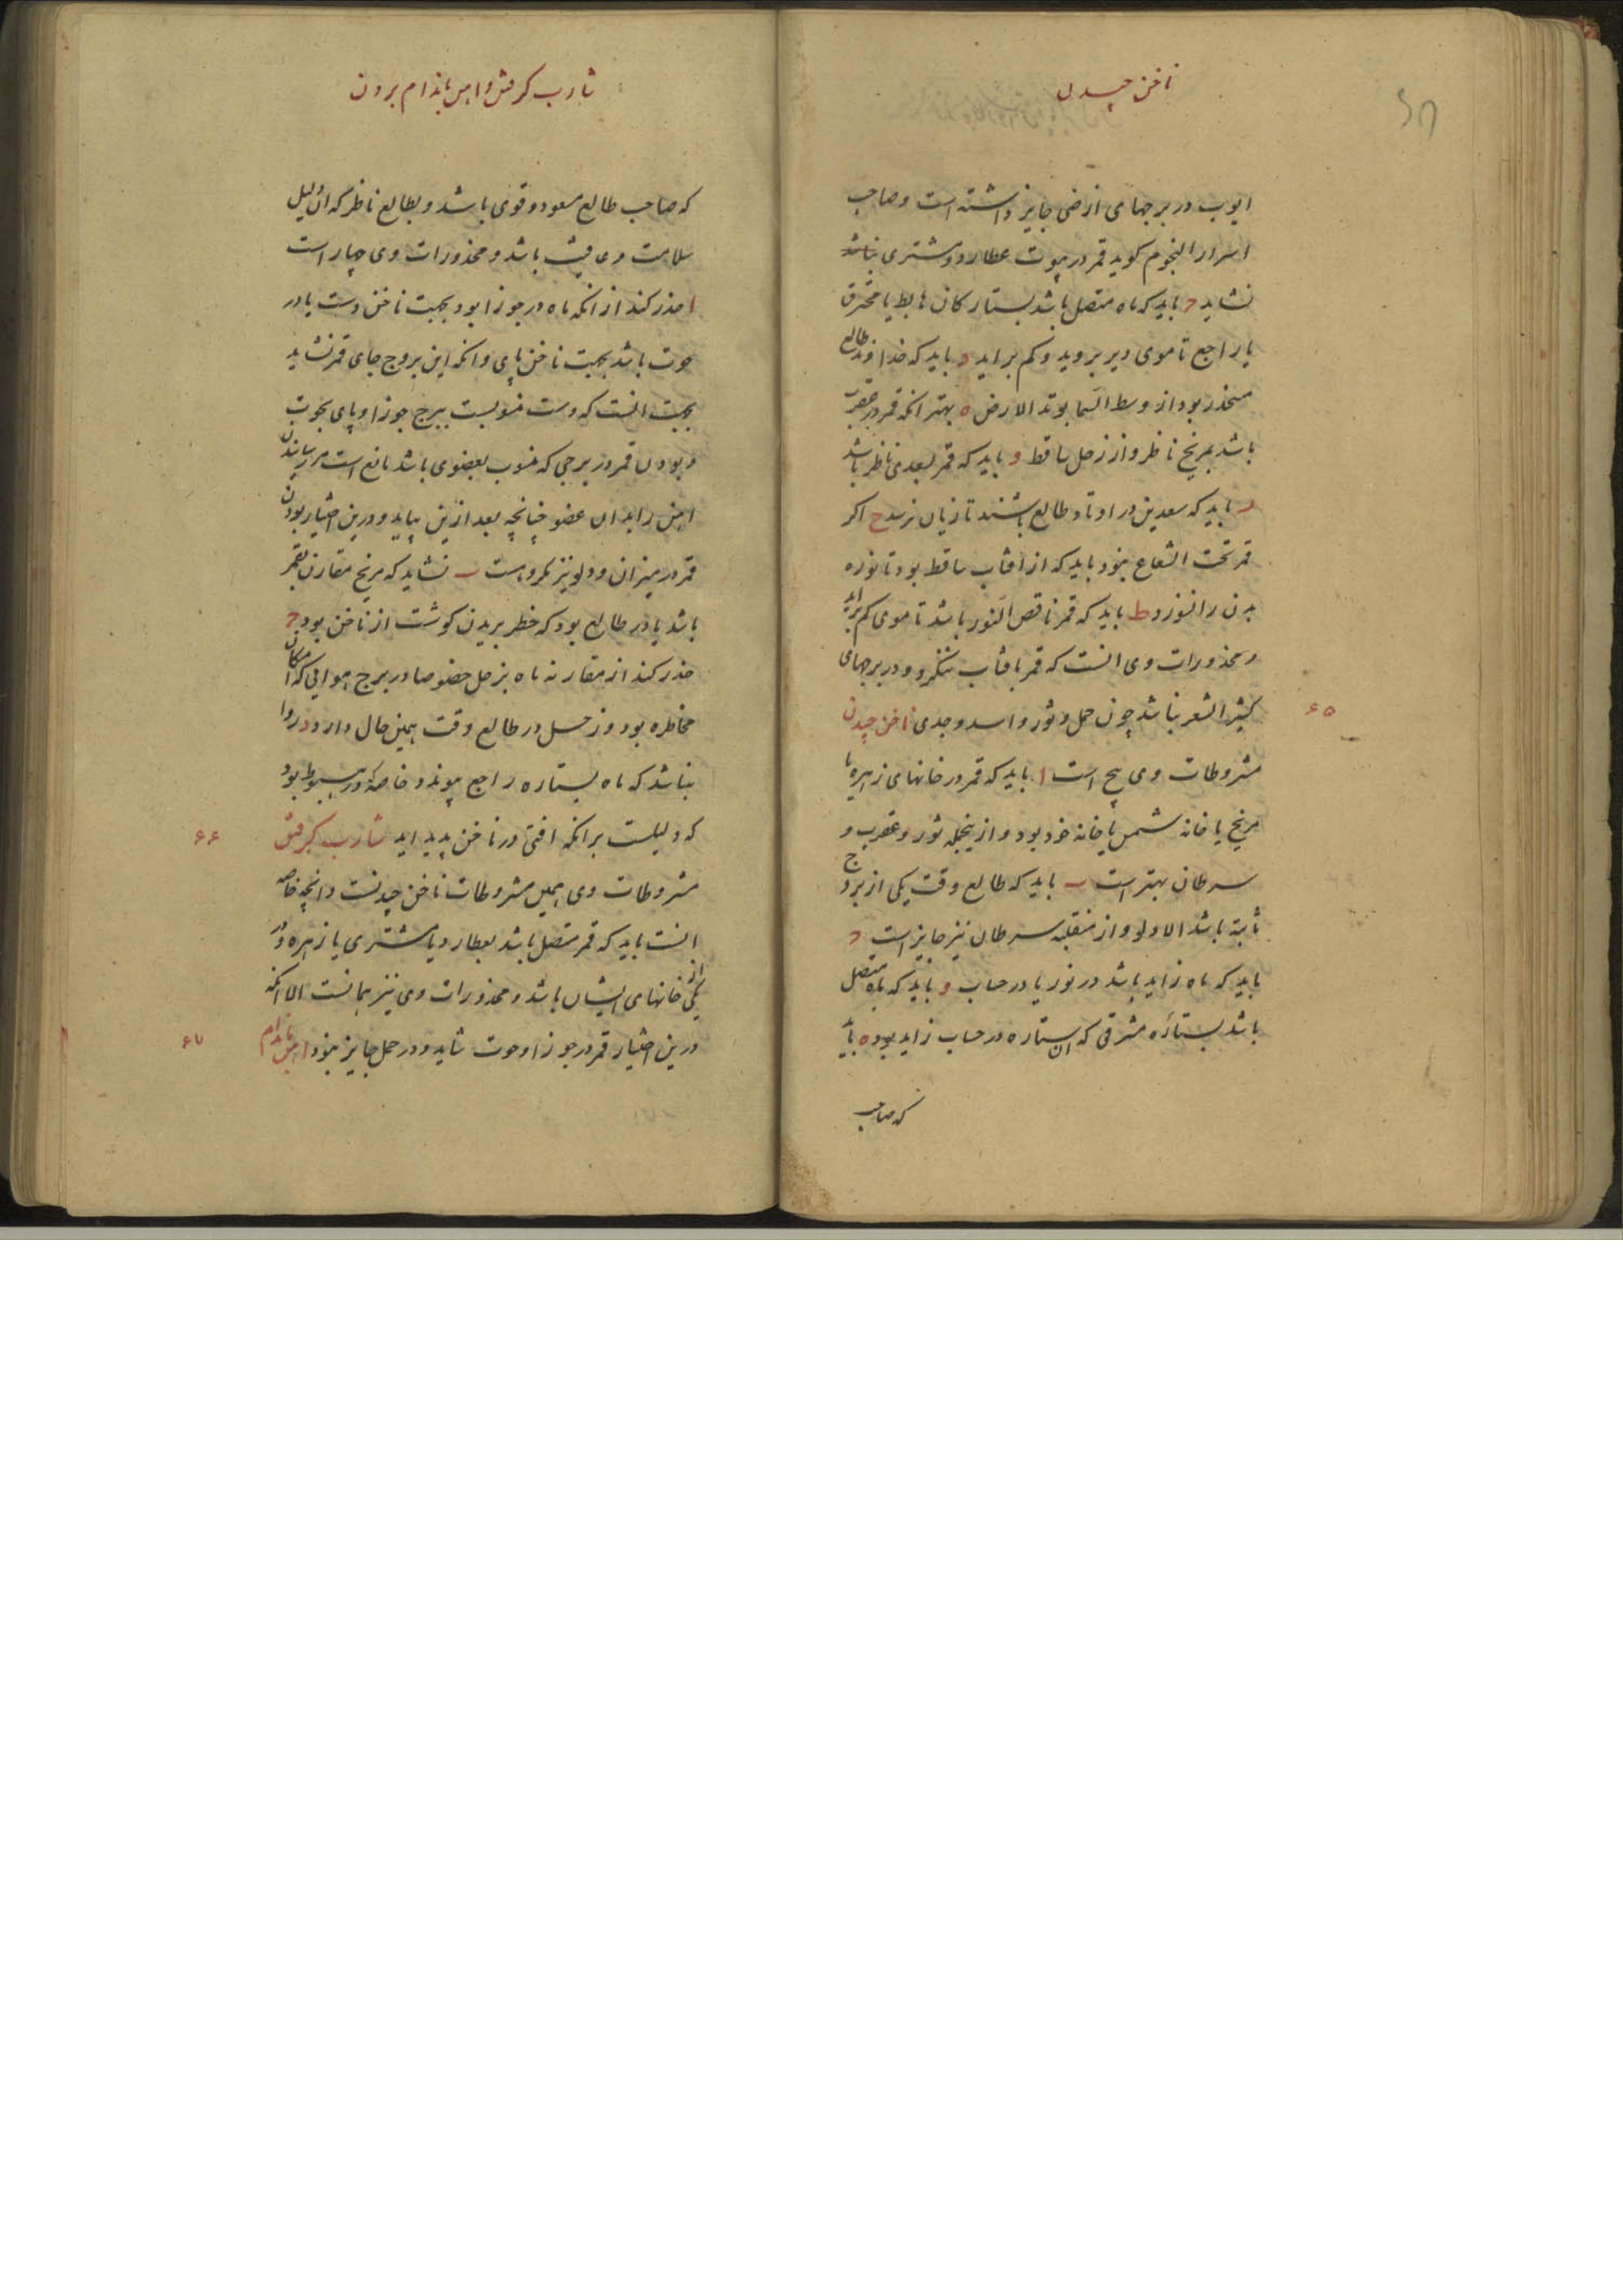 ناخن چیدن
ایوب در برجهای ارضی جایز داشته است و صاحب
اسرار النجوم کوید قمر در بیوت عطارد و مشتری نباشد
نشاید ج باید که ماه متصل باشد بستارکان هابط یا محترق
یا راجع تا موی دیر بروید و کم براید د باید که خداوند طالع
منحدر بود از وسط السما بوتد الارض ه بهتر انکه قمر در عقرب
باشد بمریخ ناظر و از زحل ساقط و باید که قمر بسعدی ناظر باشد
ز باید که سعدین در اوتاد طالع باشند تا زیان نرسد ح اکر
قمر تحت الشعاع بود باید که از افتاب ساقط بود تا نوره
بدن را نسوزد ط باید که قمر ناقص النور باشد تا موی کم براید
و محذورات وی انست که قمر بافتاب ننکرد و در برجهای
کثیر الشعر نباشد چون حمل و ثور و اسد و جدی ناخن چیدن
۶۵
مشروطات وی پنج است ا باید که قمر در خانهای زهره یا
مریخ یا خانه شمس یا خانه خود بود و از ینجمله ثور و عقرب و
سرطان بهتر است ب باید که طالع وقت یکی از بروج
ثابته باشد الا دلو و از منقلبه سرطان نیز جایز است ج
باید که ماه زاید باشد در نور یا در حساب د باید که ماه متصل
باشد بستاره مشرقی که ان ستاره در حساب زاید بود ه باید
که صاحب
شارب کرفتن و اهن باندام بردن
که صاحب طالع مسعود و قوی باشد و بطالع ناظر که ان دلیل
سلامت و عافیت باشد و محذورات وی چهار است
ا حذر کند از انکه ماه در جوزا بود بجهت ناخن دست یا در
حوت باشد بجهت ناخن پای و انکه این بروج جای قمر نشاید
بجهت انست که دست منسوبست ببرج جوزا و پای بحوت
و بودن قمر در برجی که منسوب بعضوی باشد مانع است مر رسانیدن
اهن را بدان عضو چنانچه بعد ازین بیاید و درین اختیار بودن
قمر در میزان و دلو نیز مکروهست ب نشاید که مریخ مقارن قمر
باشد یا در طالع بود که خطر بریدن کوشت از ناخن بود ج
حذر کند از مقارنه ماه بزحل خصوصا در برج هوایی که امکان
مخاطره بود و زحل در طالع وقت همین حال دارد د روا
نباشد که ماه بستاره راجع پیوندد خاصه که در هبوط بود
که دلیلست بر انکه افتی در ناخن پدید اید شارب کرفتن
۶۶
مشروطات وی همین مشروطات ناخن چیدنست و انچه خاصه
انست باید که قمر متصل باشد بعطارد یا مشتری یا زهره و در
یکی از خانهای ایشان باشد و محذورات وی نیز همانست الا انکه
درین اختیار قمر در جوزا و حوت شاید و در حمل جایز نبود اهن باندام
۶۷